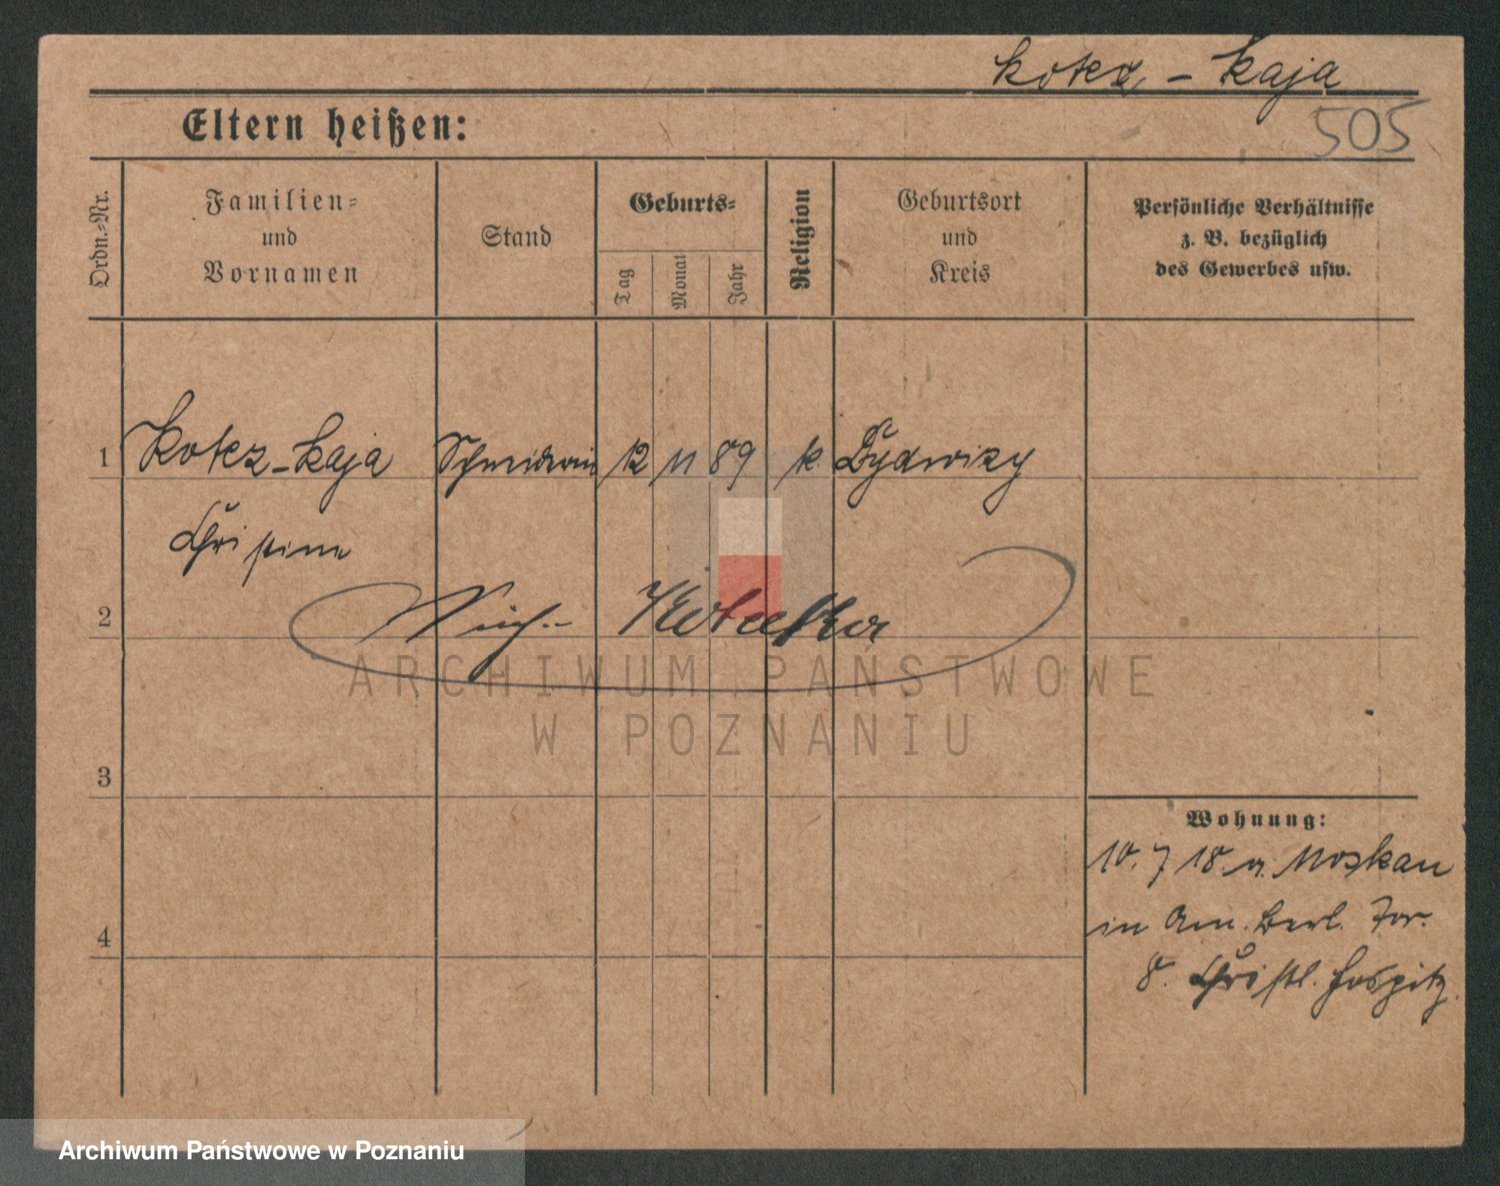 Kotez - Kaja
505
Eltern heißen:
Ordn.-Nr.
Familien- und Vornamen
Stand
Geburts-
Tag
Monat
Jahr
Religion
Geburtsort und Kreis
Persönliche Verhältnisse z. B. bezüglich des Gewerbes usw.
1 Kotez-Kaja 12 11 89 k.
Christine
2
ARCHIWUM PAŃSTWOWE
W POZNANIU
3
Wohnung:
10. 7 18. v. Moskau
in Am. Berl. Tor.
4
8. Christl. Hospitz.
Archiwum Państwowe w Poznaniu